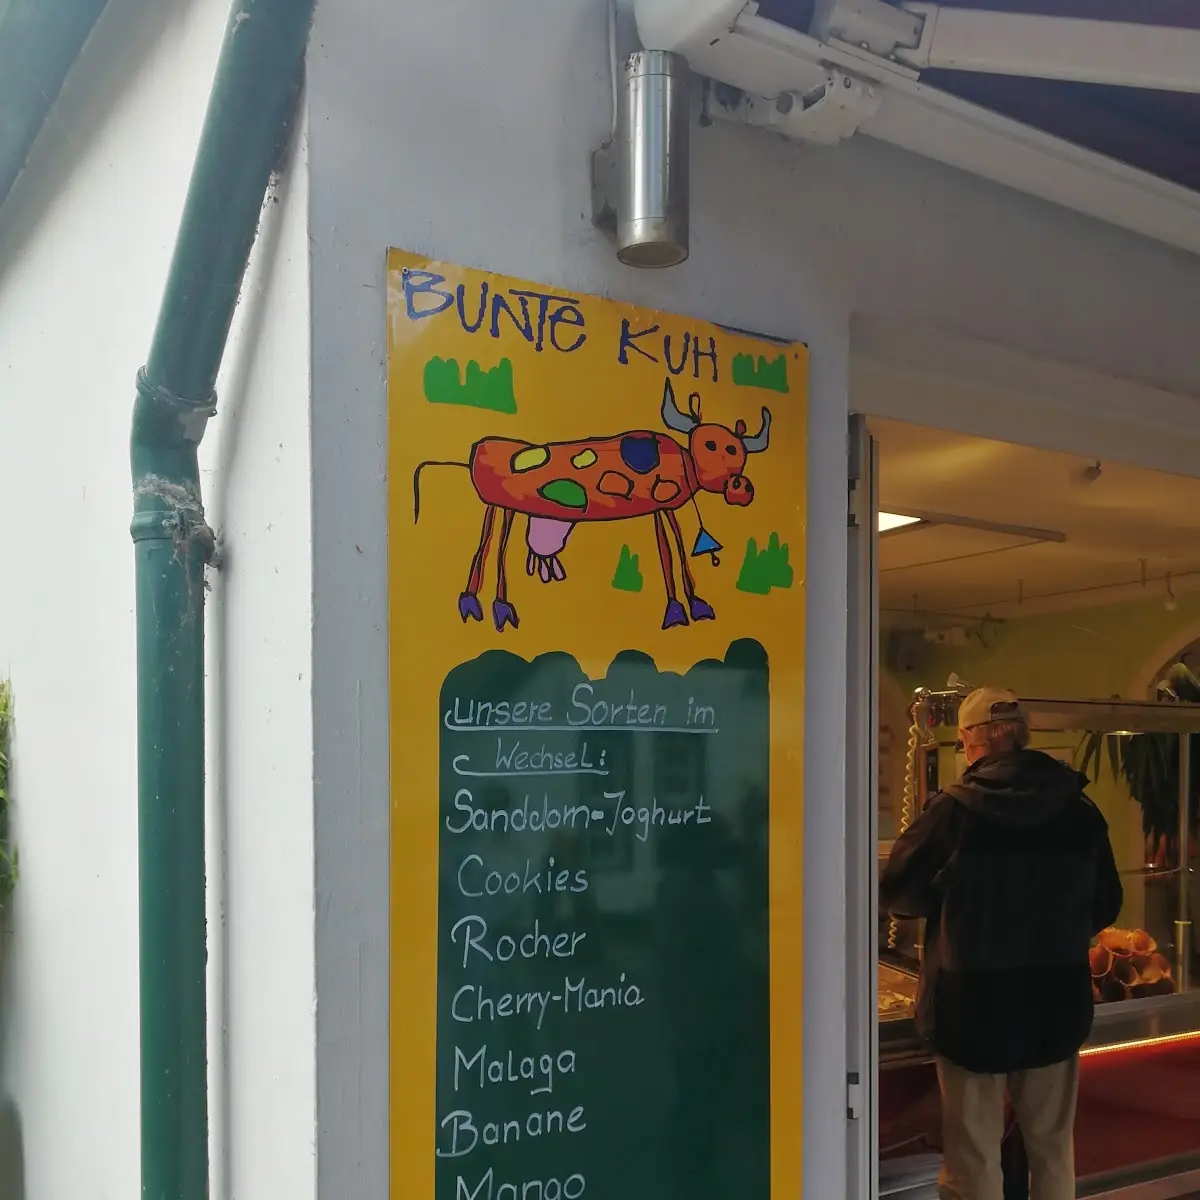 BUNTE KUH
Unsere Sorten im
Wechsel:
Sanddorn-Joghurt
Cookies
Rocher
Cherry-Mania
Malaga
Banane
Mango